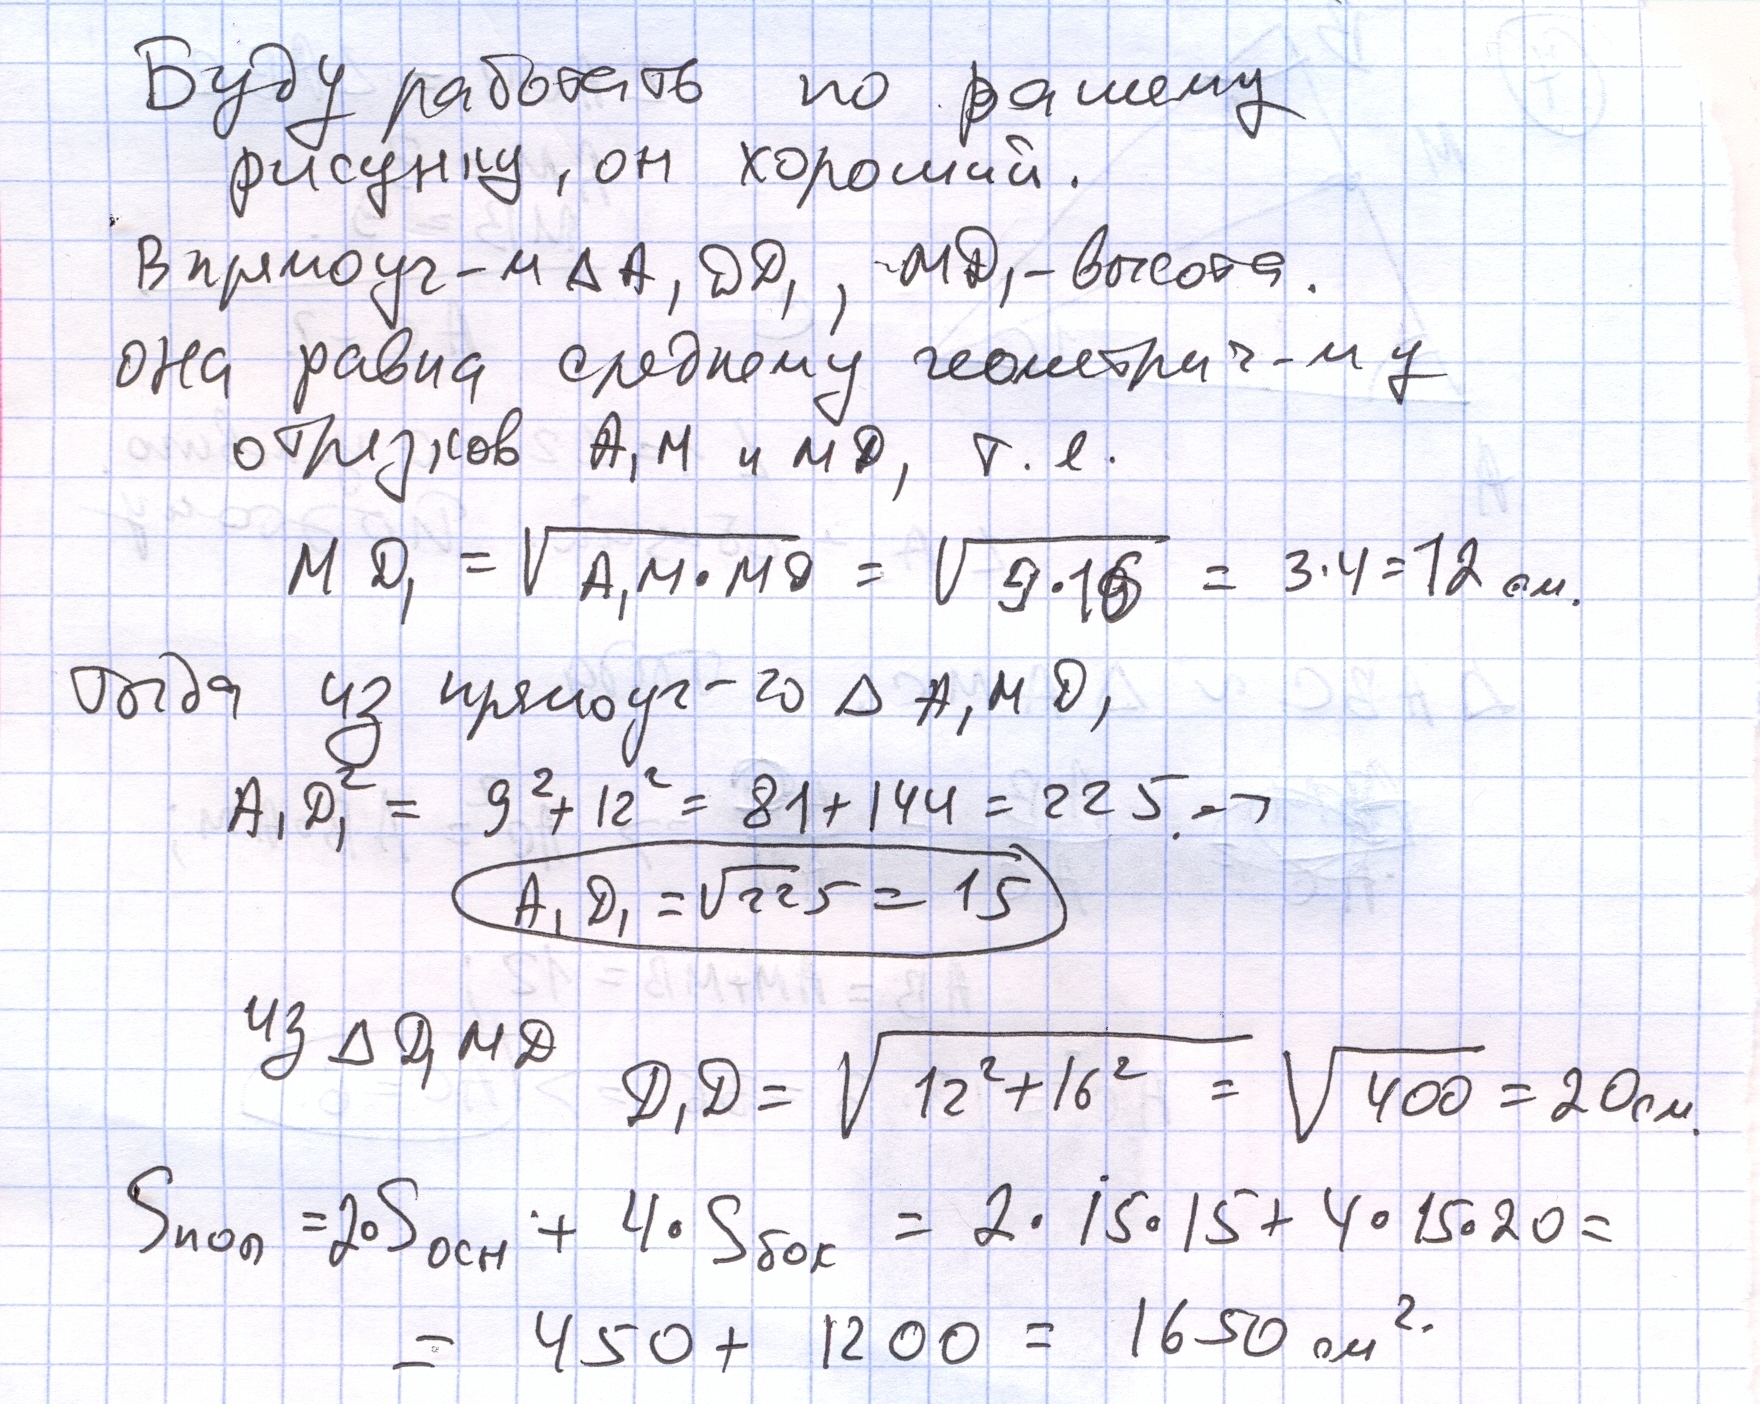 Буду работать по вашему
рисунку, он хороший.
В прямоуг-м Δ A₁DD₁, MD₁ - высота.
она равна среднему геометрич-му
отрезков A₁M и MD, т.е.
MD₁ = √(A₁M·MD) = √(9·16) = 3·4=12 см.
Тогда из прямоуг-го Δ A₁MD₁
A₁D₁² = 9²+12² = 81+144 = 225. →
A₁D₁ = √225 = 15
из Δ D₁MD
D₁D = √(12²+16²) = √400 = 20 см.
Sпол = 2·Sосн + 4·Sбок = 2·15·15+4·15·20=
= 450+1200 = 1650 см².